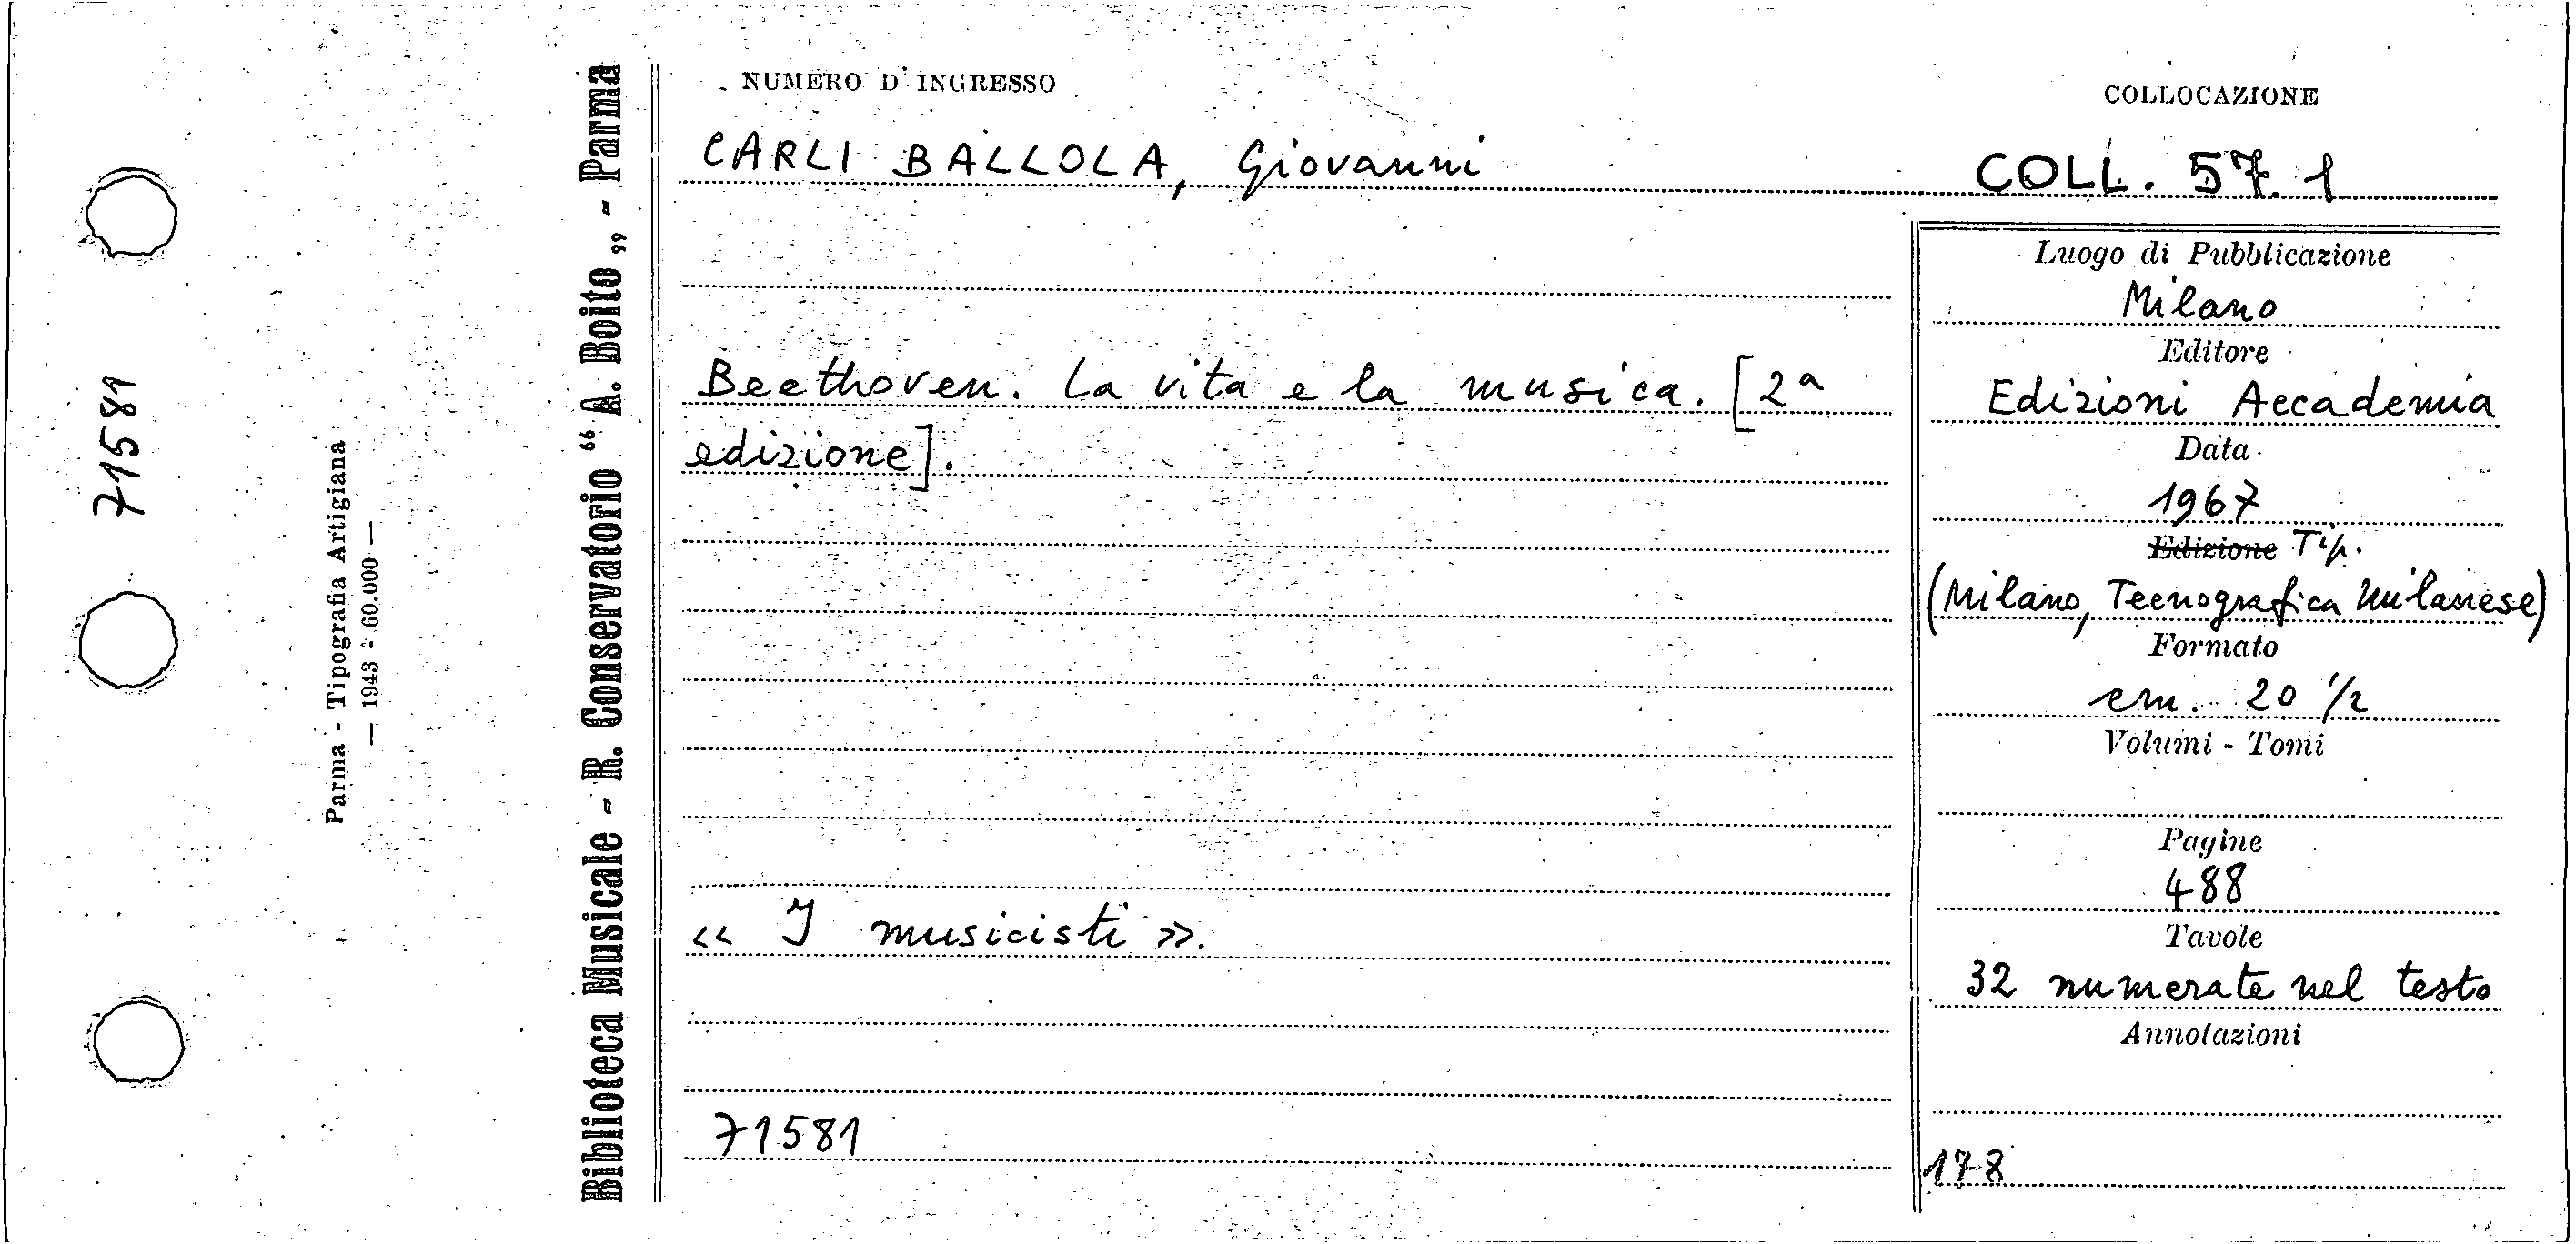 71581
Parma - Tipografia Artigiana
— 1943 - 60.000 —
Biblioteca Musicale - R. Conservatorio “ A. Boito „ - Parma
NUMERO D' INGRESSO
COLLOCAZIONE
CARLI BALLOLA, Giovanni
COLL. 57.1
Beethoven. La vita e la musica. [2ª
edizione].
« I musicisti ».
71581
Luogo di Pubblicazione
Milano
Editore
Edizioni Accademia
Data
1967
Edizione Tip.
(Milano, Tecnografica Milanese)
Formato
cm. 20 1/2
Volumi - Tomi
Pagine
488
Tavole
32 numerate nel testo
Annotazioni
178